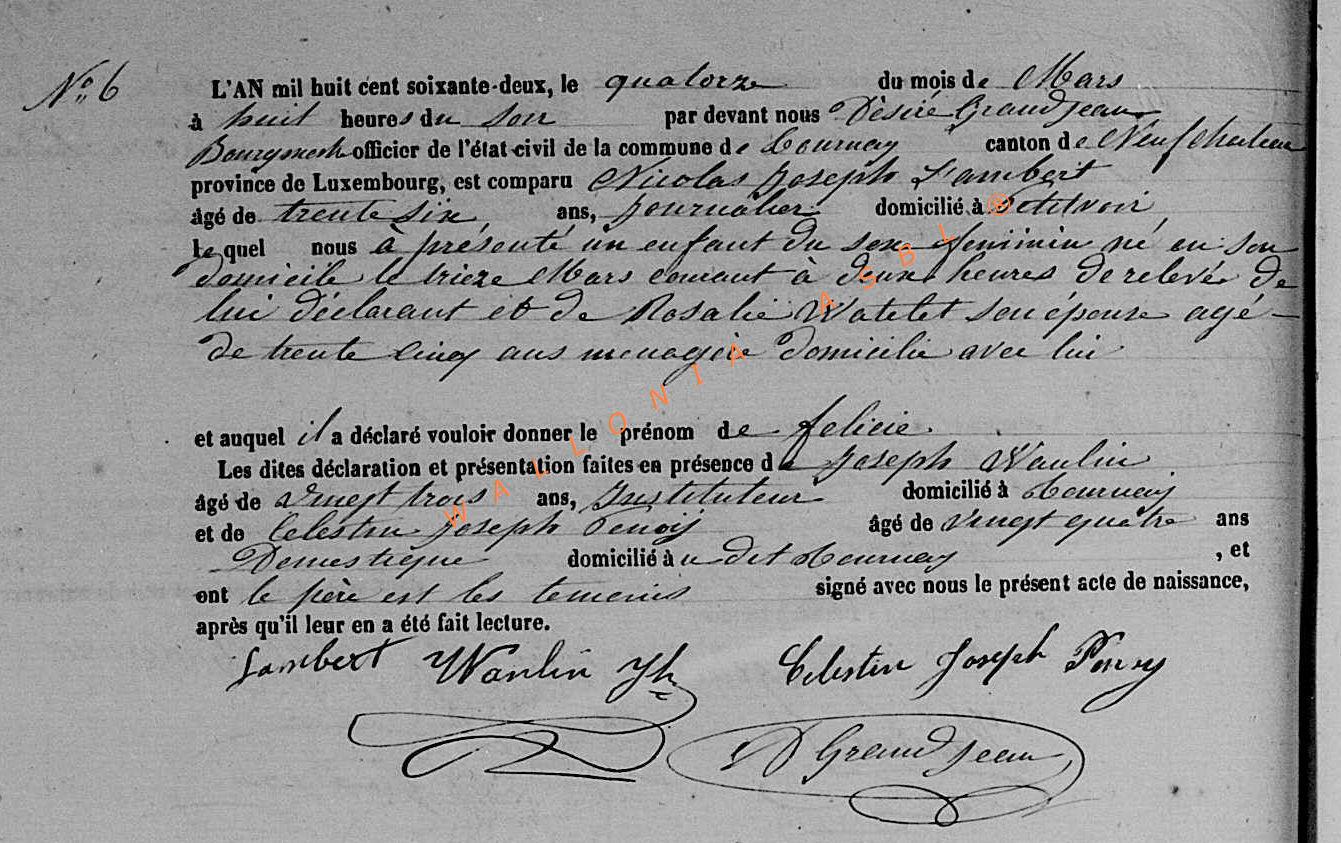 N° 6
L'AN mil huit cent soixante-deux, le quatorze du mois de Mars
à huit heures du soir par devant nous Désiré Grandjean
Bourgmestre officier de l'état civil de la commune de Tournay canton de Neufchateau
province de Luxembourg, est comparu Nicolas Joseph Lambert
âgé de trente six ans, journalier domicilié à Petitvoir
lequel nous à présenté un enfant du sexe feminin né en son
domicile le trieze Mars courant à deux heures de relevé de
lui déclarant et de Rosalie Watelet son épouse agé
de trente cinq ans menagère domicilie avec lui
et auquel il a déclaré vouloir donner le prénom de felicie.
Les dites déclaration et présentation faites en présence de Joseph Wanlin
âgé de vingt trois ans, Instituteur domicilié à Tournay
et de Celestin Joseph âgé de vingt quatre ans
Domestique domicilié à u dit Tournay , et
ont le père est les temoins signé avec nous le présent acte de naissance,
après qu'il leur en a été fait lecture.
Lambert Wanlin Jh Celestin Joseph
D Grandjean
WALLONIA ASBL ®